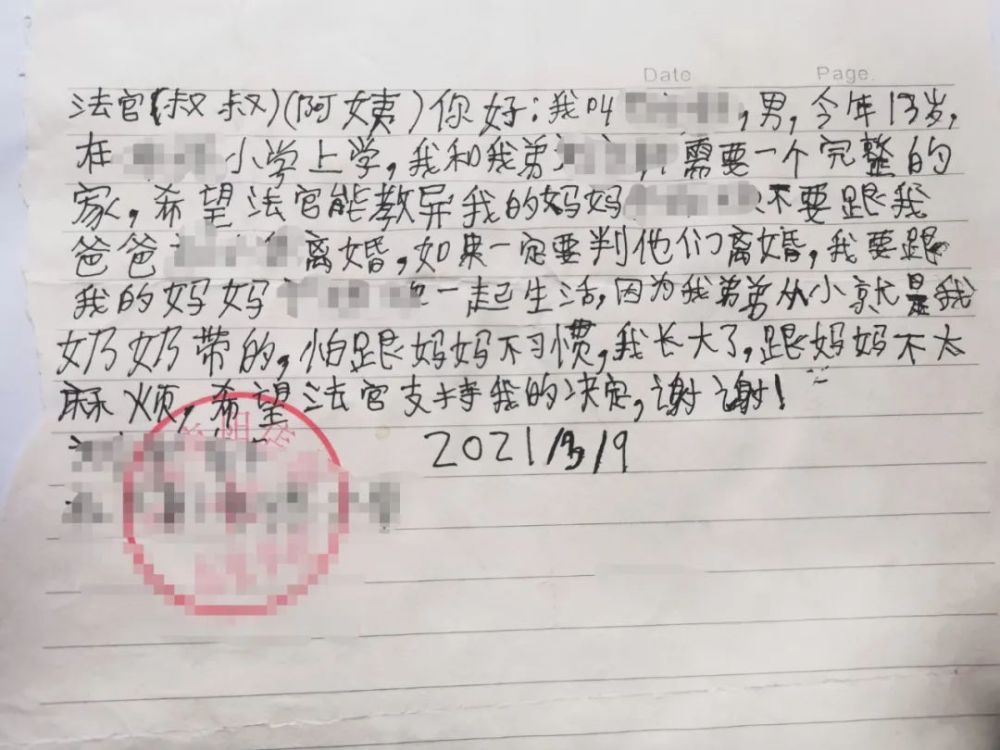 Date Page.
法官(叔叔)(阿姨)你好:我叫,男,今年13岁,
在小学上学,我和我弟需要一个完整的
家,希望法官能教导我的妈妈不要跟我
爸爸离婚,如果一定要判他们离婚,我要跟
我的妈妈一起生活,因为我弟弟从小就是我
奶奶带的,怕跟妈妈不习惯,我长大了,跟妈妈不太
麻烦,希望法官支持我的决定,谢谢!
2021/3/9